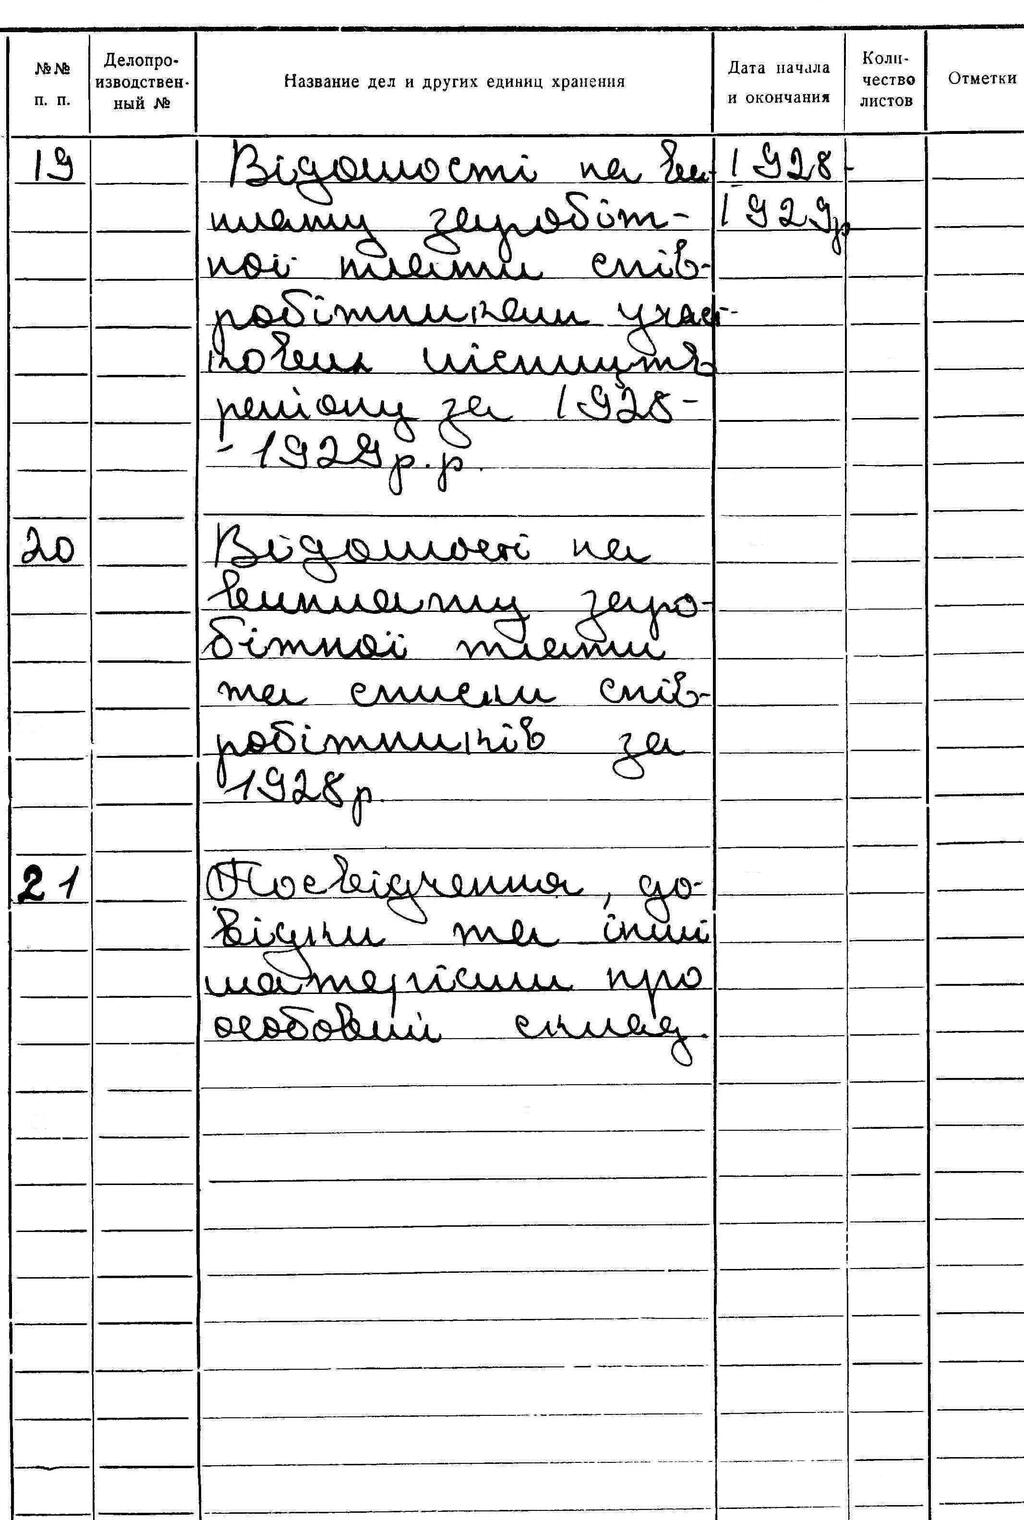 №№ п. п.
Делопро-
изводствен-
ный №
Название дел и других единиц хранения
Дата начала
и окончания
Коли-
чество
листов
Отметки
19 Відомості на ви- 1928-
плату заробіт- 1929р
ної плати спів-
робітникам участ-
кових лісництв
регіону за 1928-
-1929р.р.
20 Відомості на
виплату заро-
бітної плати
та списки спів-
робітників за
1928р.
21 Посвідчення, до-
відки та інші
матеріали про
особовий склад.